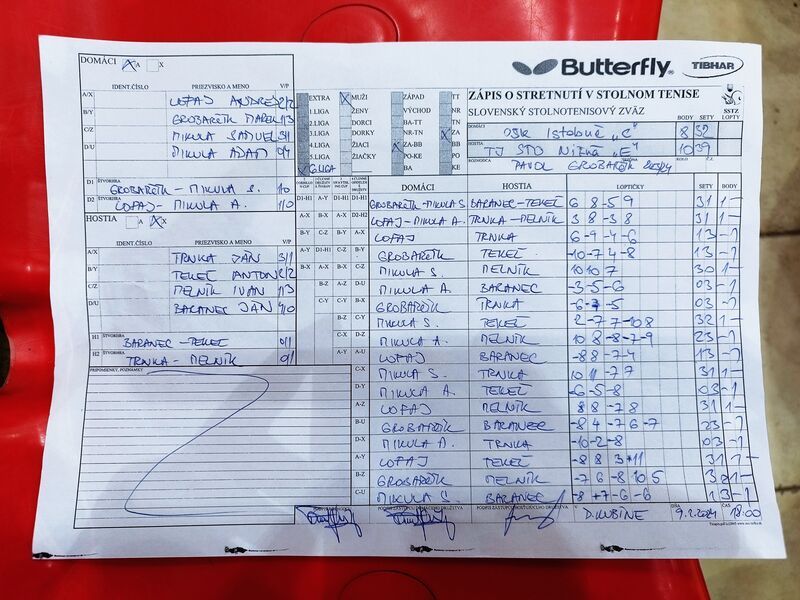 DOMÁCI A X
Butterfly® TIBHAR
IDENT.ČÍSLO PRIEZVISKO A MENO V/P
A/X LOFAJ ANDREJ 2/2
B/Y GROBARČÍK MAREK 1/3
C/Z MIKULA SAMUEL 3/1
D/U MIKULA ADAM 0/4
EXTRA MUŽI ZÁPAD TT
1.LIGA ŽENY VÝCHOD NR
2.LIGA DORCI BA-TT TN
3.LIGA DORKY NR-TN ZA
4.LIGA ŽIACI ZA-BB BB
5.LIGA ŽIAČKY PO-KE PO
6.LIGA BA KE
ZÁPIS O STRETNUTÍ V STOLNOM TENISE
SLOVENSKÝ STOLNOTENISOVÝ ZVÄZ
SSTZ
BODY SETY LOPTY
DOMÁCI OŠK Istebné „C" 8 32
HOSTIA TJ ŠTO Nižná „E" 10 39
ROZHODCA PAVOL GROBARČÍK
D1 ŠTVORHRA GROBARČÍK - MIKULA S. 1/0
D2 LOFAJ - MIKULA A. 1/0
HOSTIA A X
IDENT.ČÍSLO PRIEZVISKO A MENO V/P
A/X TRNKA JÁN 3/1
B/Y TEKEĽ ANTON 2/2
C/Z MELNÍK IVAN 1/3
D/U BARANEC JÁN 4/0
H1 ŠTVORHRA BARANEC - TEKEĽ 0/1
H2 TRNKA - MELNÍK 0/1
PRIPOMIENKY, POZNÁMKY
DOMÁCI HOSTIA LOPTIČKY SETY BODY
GROBARČÍK-MIKULA S. BARANEC-TEKEĽ 6 8 -5 9 31 1-
LOFAJ-MIKULA A. TRNKA-MELNÍK 3 8 -3 8 31 1-
LOFAJ TRNKA 6 -9 -4 -6 13 -1
GROBARČÍK TEKEĽ -10 -7 4 -8 13 -1
MIKULA S. MELNÍK 10 10 7 30 1-
MIKULA A. BARANEC -3 -5 -6 03 -1
GROBARČÍK TRNKA -6 -7 -5 03 -1
MIKULA S. TEKEĽ 2 -7 7 -10 8 32 1-
MIKULA A. MELNÍK 10 8 -8 -7 -9 23 -1
LOFAJ BARANEC -8 8 -7 -4 13 -1
MIKULA S. TRNKA 10 11 -7 7 31 1-
MIKULA A. TEKEĽ -6 -5 -8 03 -1
LOFAJ MELNÍK 8 8 -7 8 31 1-
GROBARČÍK BARANEC -8 4 -7 6 -7 23 -1
MIKULA A. TRNKA -10 -2 -8 03 -1
LOFAJ TEKEĽ -8 8 3 11 31 1-
GROBARČÍK MELNÍK -7 6 -8 10 5 32 1-
MIKULA S. BARANEC -8 7 -6 -6 13 -1
V D.KUBÍNE DŇA 9.2.2024 ČAS 18:00